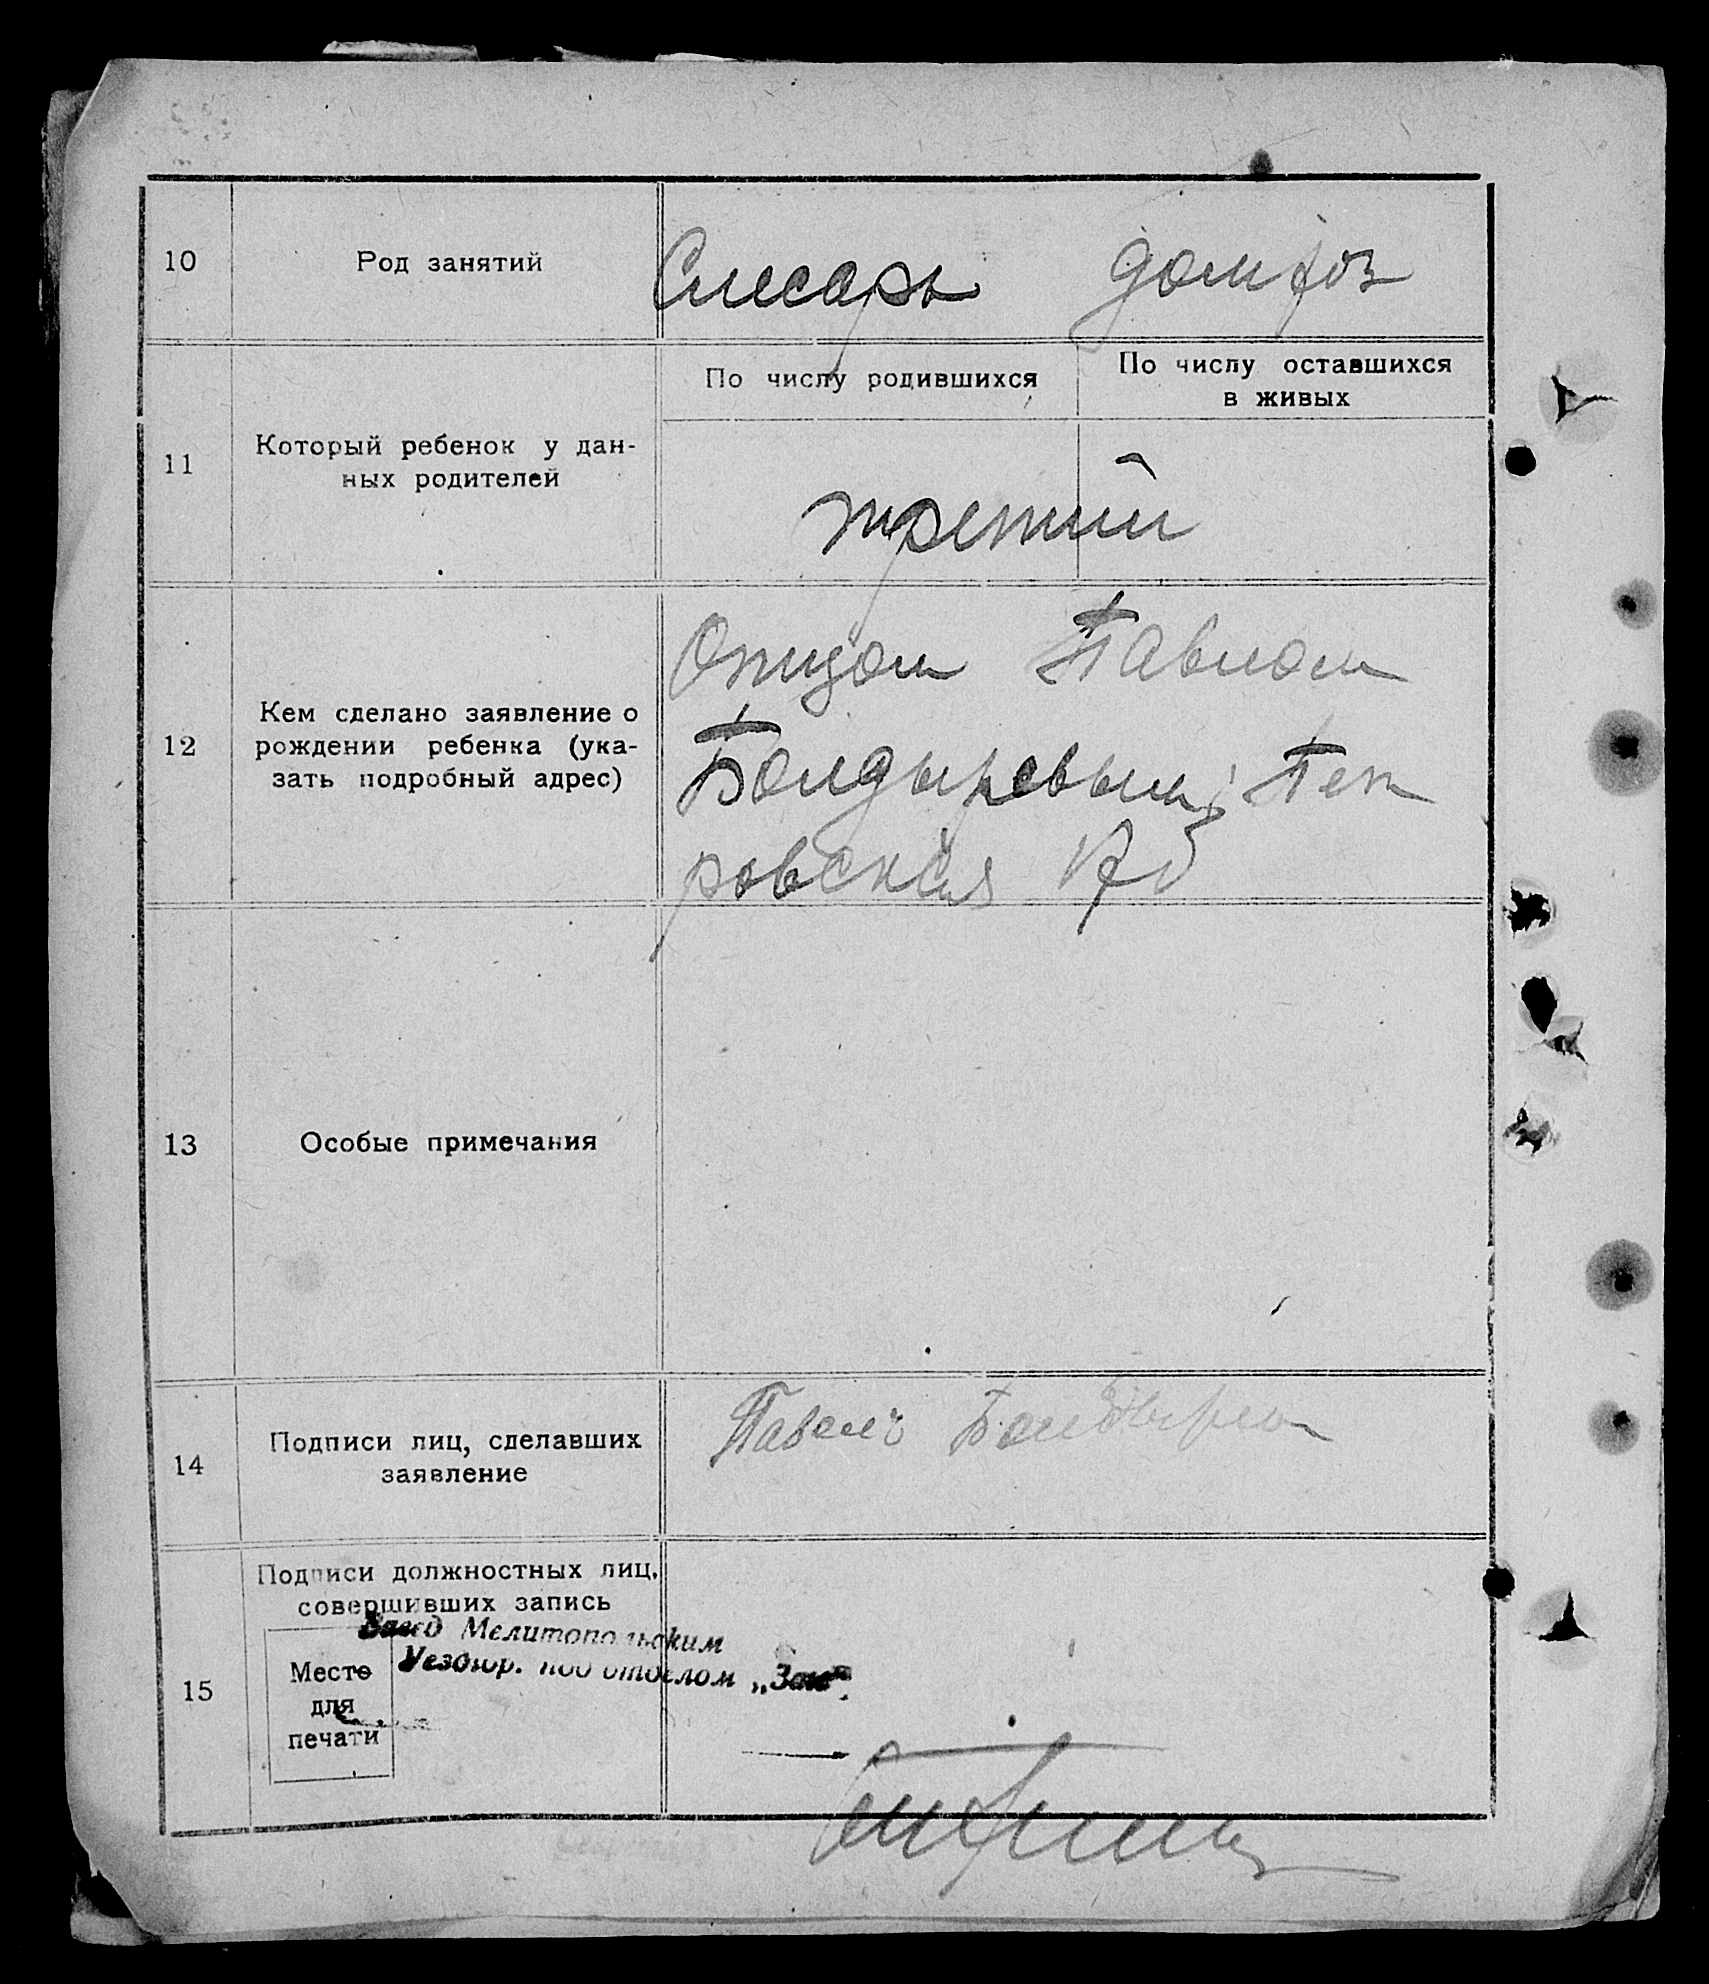 10 Род занятий Слесарь домхоз
По числу родившихся
По числу оставшихся
в живых
11 Который ребенок у дан-
ных родителей
третий
12 Кем сделано заявление о
рождении ребенка (ука-
зать подробный адрес)
Отцом Павлом
Болдыревым, Пет
ровская
13 Особые примечания
14 Подписи лиц, сделавших
заявление
Павелъ Болдырев
15 Подписи должностных лиц,
совершивших запись
Завед Мелитопольским
Уездгор. под отделом „Загс“.
Место
для
печати